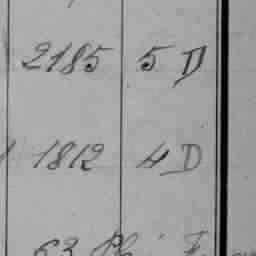 2185 5 D
1812 4 D
63